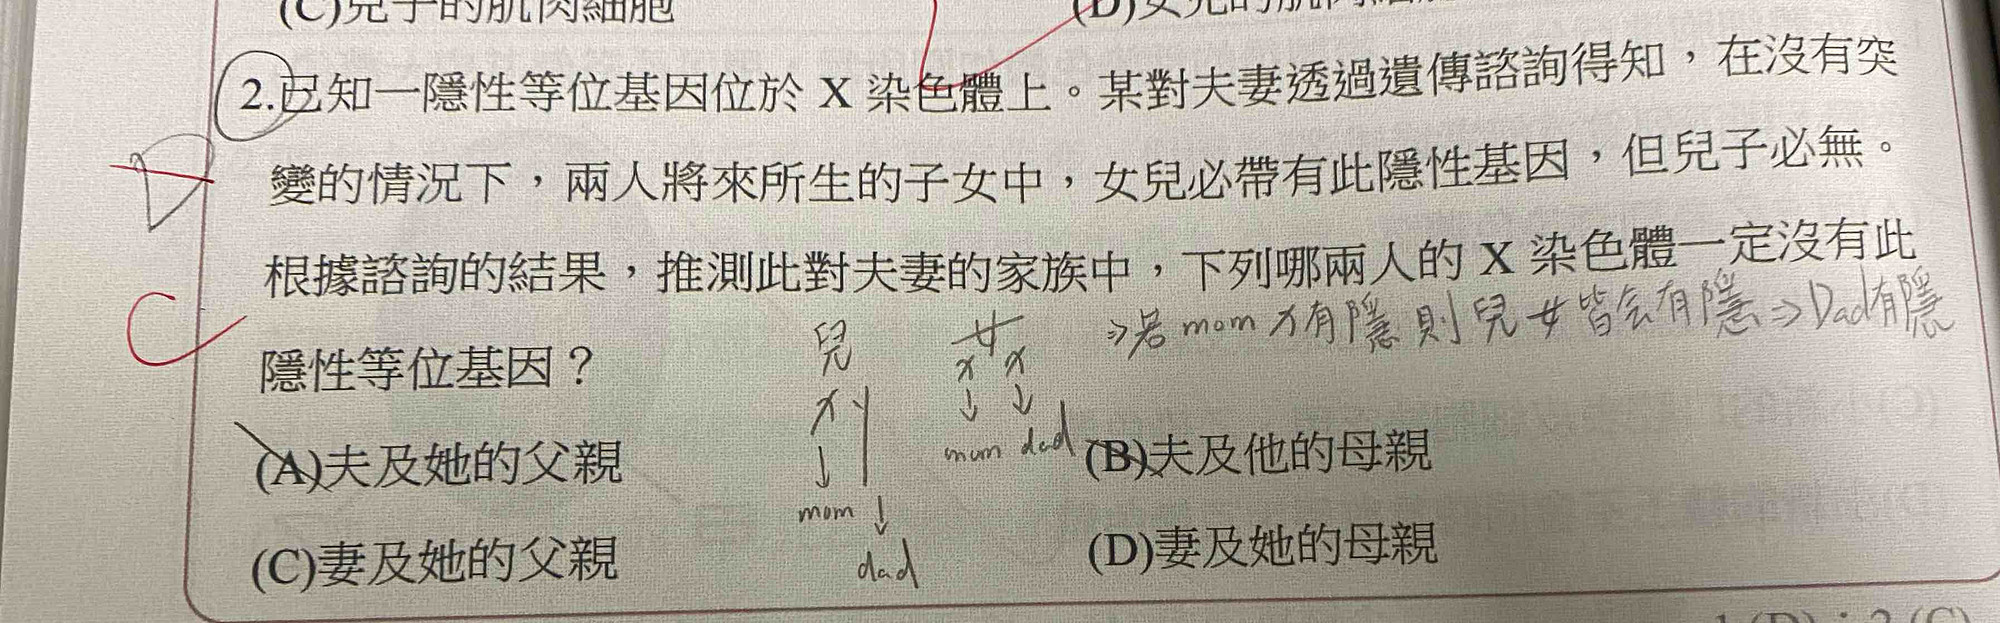 (C)兒子的肌肉細胞
2.已知一隱性等位基因位於 X 染色體上。某對夫妻透過遺傳諮詢得知，在沒有突
變的情況下，兩人將來所生的子女中，女兒必帶有此隱性基因，但兒子必無。
根據諮詢的結果，推測此對夫妻的家族中，下列哪兩人的 X 染色體一定沒有此
隱性等位基因？
D
C
兒 女 ⇒若 mom 有隱 則 兒女皆会有隱 ⇒Dad有隱
x x
x y
mum dad
mom
dad
(A)夫及她的父親 (B)夫及他的母親
(C)妻及她的父親 (D)妻及她的母親